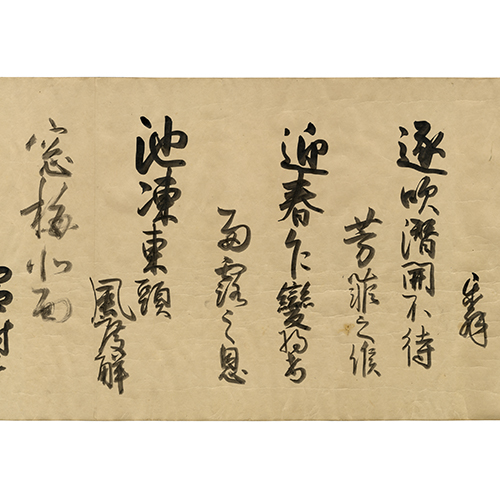 逐吹潛開不待
芳菲之候
迎春乍變将希
雨露之恩
池凍東頭
風度解
窓梅北面
封